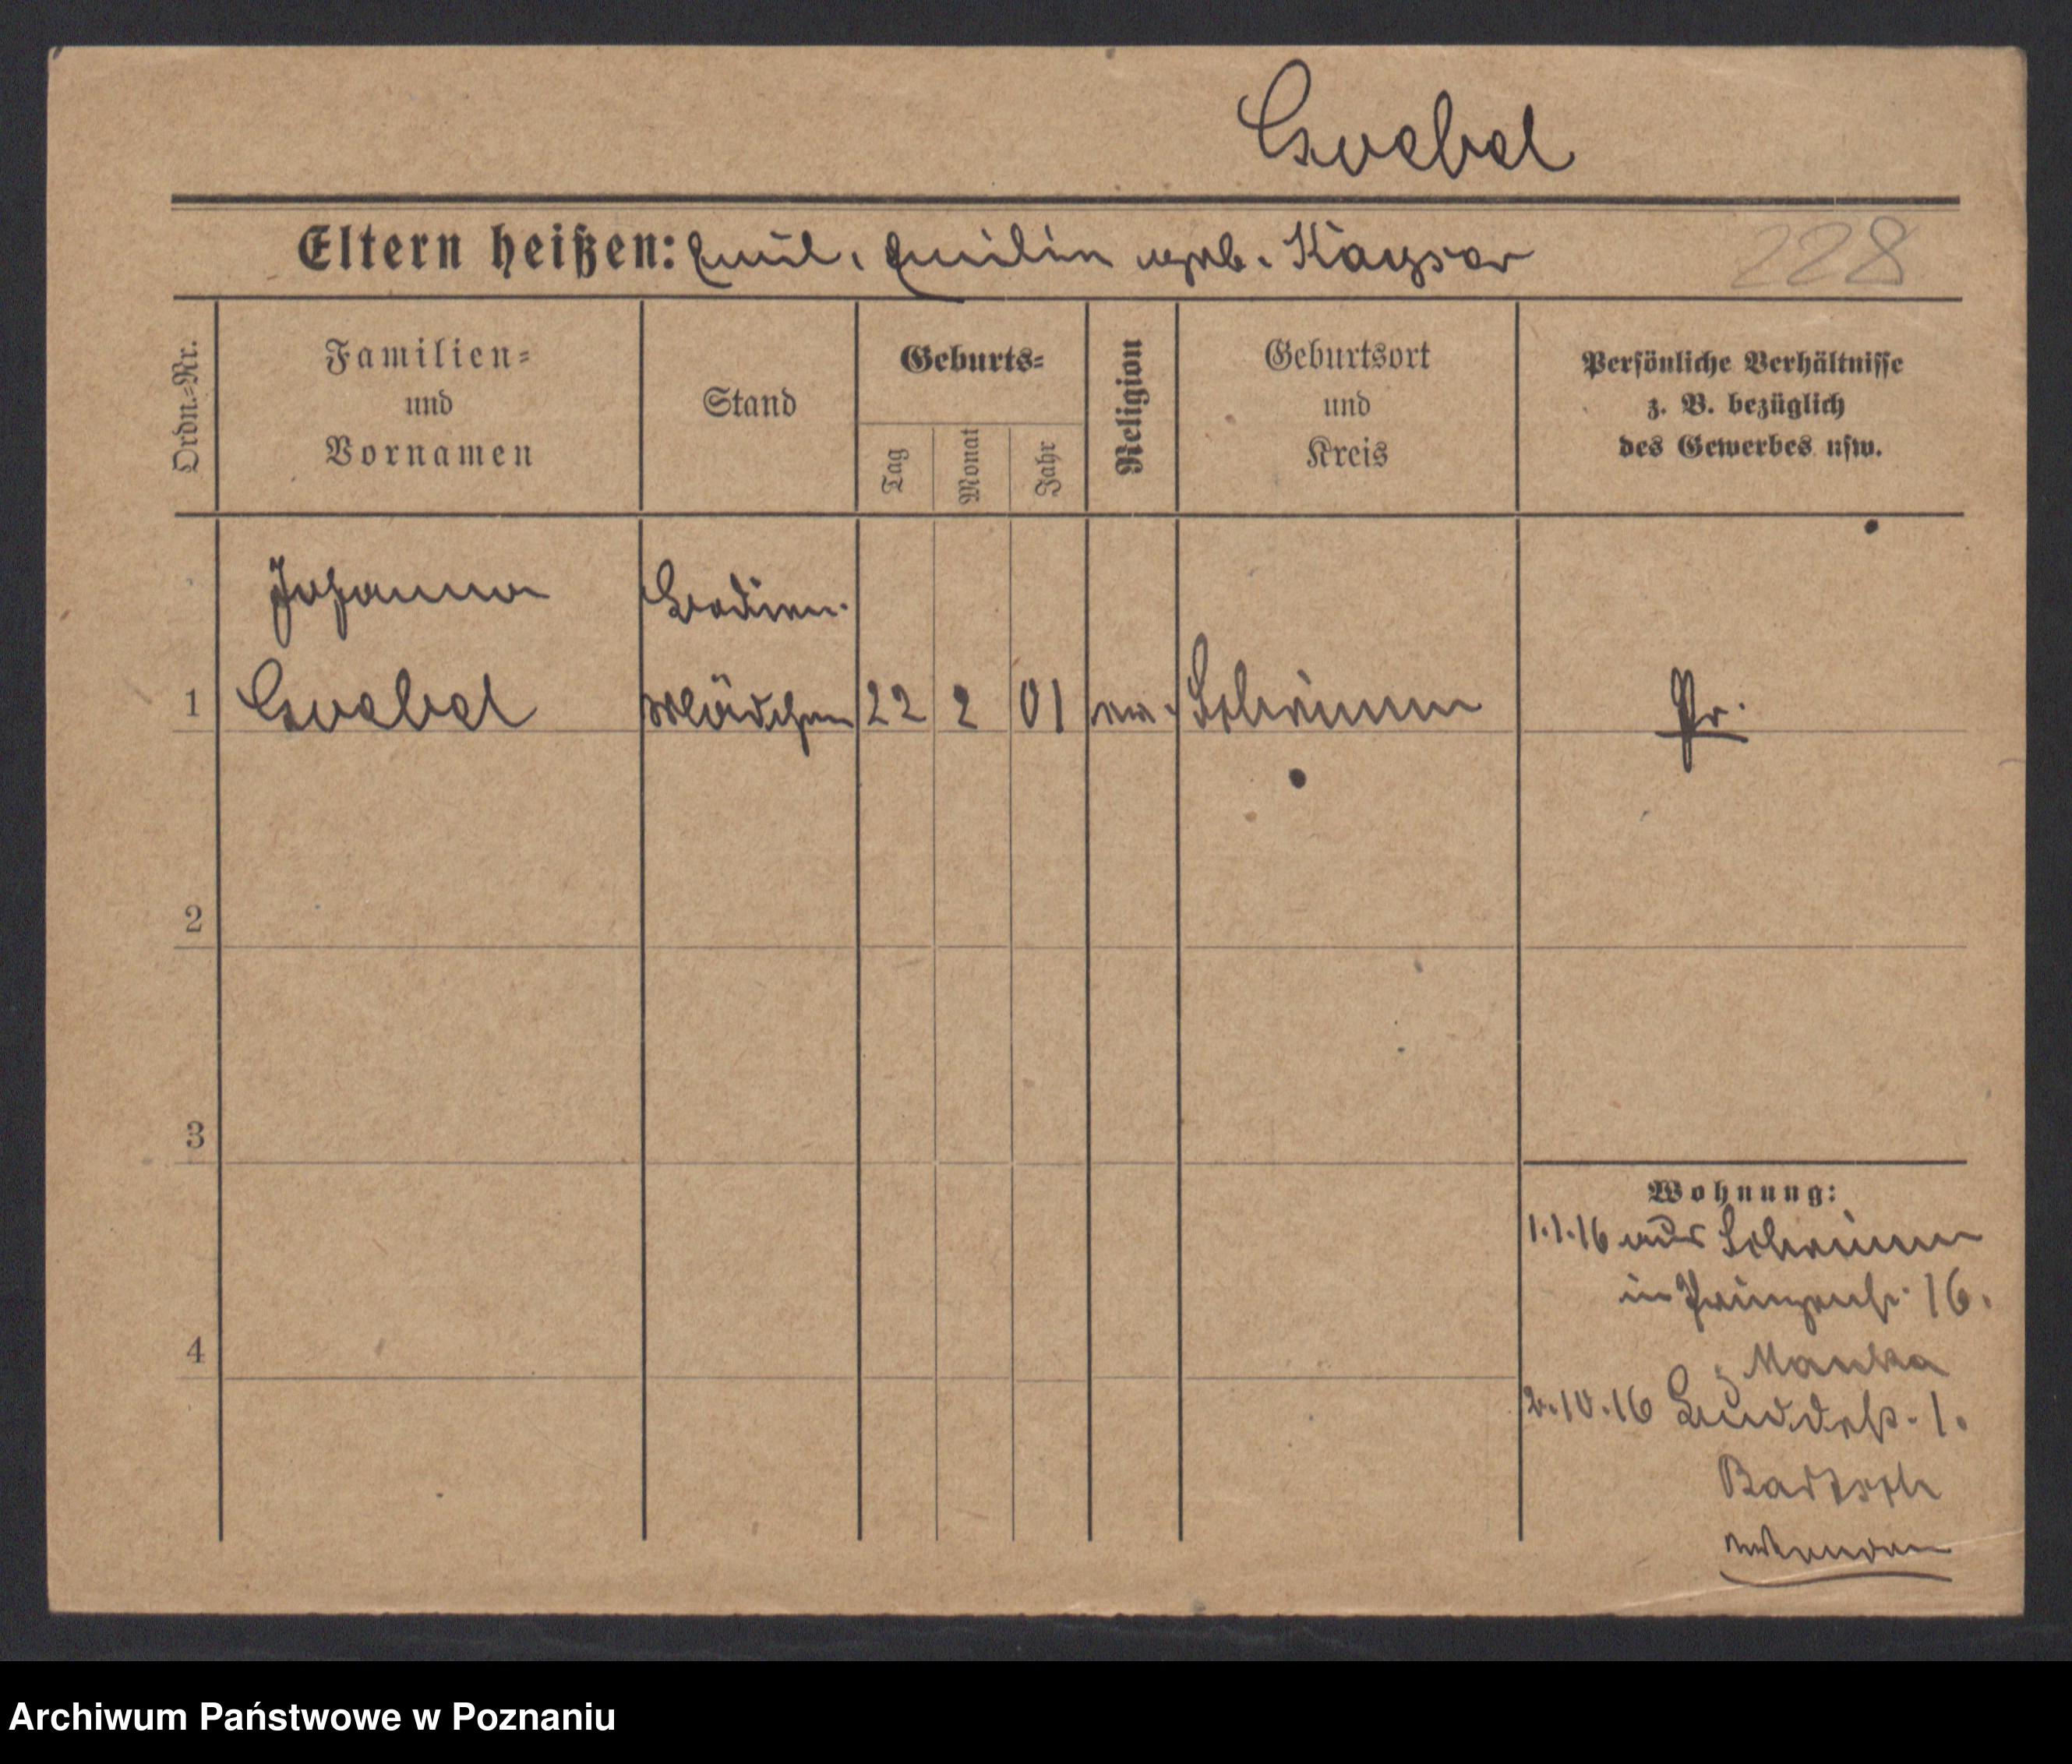 Goebel
Eltern heißen: Emil, Emilie geb. Kayser
228
Ordn.-Nr.
Familien-
und
Vornamen
Stand
Geburts-
Tag
Monat
Jahr
Religion
Geburtsort
und
Kreis
Persönliche Verhältnisse
z. B. bezüglich
des Gewerbes usw.
Johanna
Goebel
Bedien.
Mädchen
1
22
2
01
ev.
Schrimm
Pr.
2
3
4
Wohnung:
1.1.16 aus Schrimm
in Prinzenstr. 16.
2.10.16 Buddestr. 1.
Bartsch
Archiwum Państwowe w Poznaniu